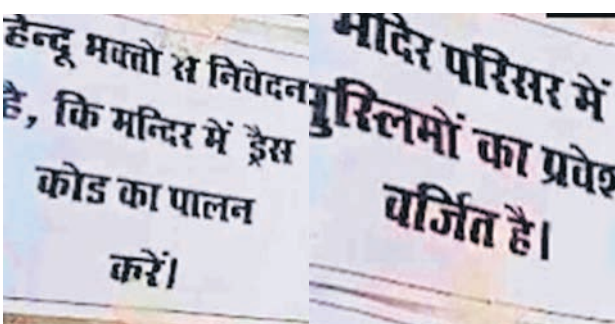 हिन्दू भक्तो से निवेदन
है, कि मन्दिर में ड्रैस
कोड का पालन
करें।
मंदिर परिसर में
मुस्लिमों का प्रवेश
वर्जित है।